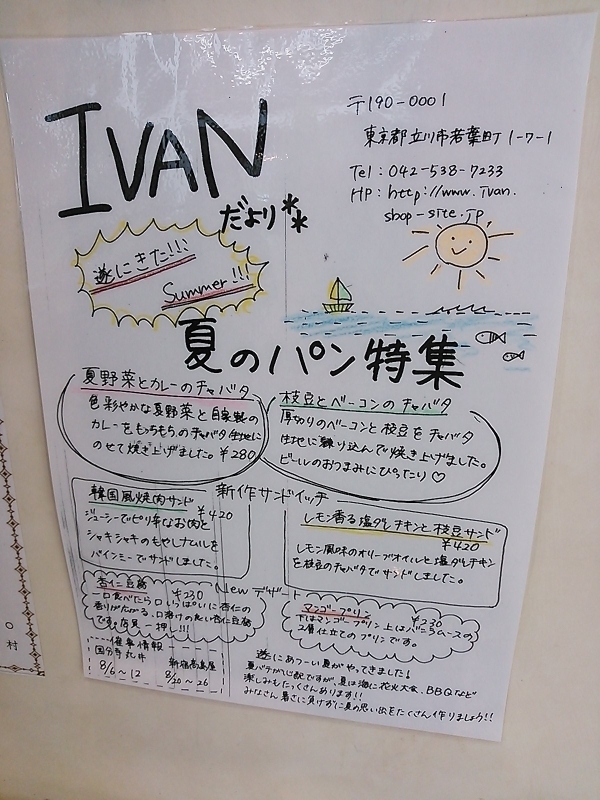 IVAN
だより**
〒190-0001
東京都立川市若葉町1-7-1
Tel: 042-538-7233
HP: http://www.ivan.
shop-site.jp
遂にきた!!!
Summer!!!
夏のパン特集
夏野菜とカレーのチャバタ
色彩やかな夏野菜と自家製の
カレーをもっちもちのチャバタ生地に
のせて焼き上げました。¥280
枝豆とベーコンのチャバタ
厚切りのベーコンと枝豆をチャバタ
生地に練り込んで焼き上げました。
ビールのおつまみにぴったり♡
新作サンドイッチ
韓国風焼肉サンド
¥420
ジューシーでピリ辛なお肉と
シャキシャキのもやしナムルを
バインミーでサンドしました。
レモン香る塩ダレチキンと枝豆サンド
¥420
レモン風味のオリーブオイルと塩ダレチキン
を枝豆のチャバタでサンドしました。
Newデザート
杏仁豆腐 ¥230
一口食べたら口いっぱいに杏仁の
香りが広がる、口溶けの良い杏仁豆腐
です。店長一押し!!!
マンゴープリン ¥230
下はマンゴープリン上はバニラムースの
2層仕立てのプリンです。
催事情報
国分寺丸井
8/6~12
新宿高島屋
8/20~26
遂にあつーい夏がやってきました!
夏バテが心配ですが、夏は海に花火大会、BBQなど
楽しみもたくさんあります!!
みなさん暑さに負けずに夏の思い出をたくさん作りましょう!!
村